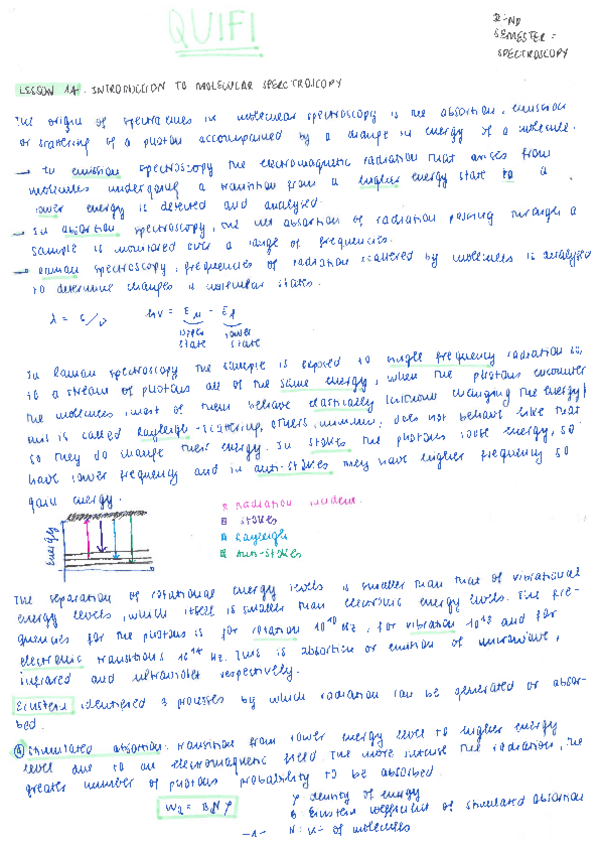 QUIFI
2-ND
SEMESTER =
SPECTROSCOPY
LESSON 14. INTRODUCCION TO MOLECULAR SPECTROSCOPY
The origin of spectral lines in molecular spectroscopy is the absortion, emission
or scattering of a photon accompanied by a change in energy of a molecule.
→ In emission spectroscopy the electromagnetic radiation that arises from
molecules undergoing a transition from a higher energy state to a
lower energy is detected and analysed.
→ In absortion spectroscopy, the net absortion of radiation passing through a
sample is monitored over a range of frequencies.
→ Raman spectroscopy: frequencies of radiation scattered by molecules is analysed
to determine changes in molecular states.
λ = c/ν hν = Eu - El
upper state lower state
In Raman spectroscopy the sample is exposed to single frequency radiation
to a stream of photons all of the same energy, when the photons encounter
the molecules, most of them behave elastically (without changing the energy)
this is called Rayleigh-scattering, others, does not behave like that
so they do change their energy. In Stokes the photons loose energy, so
have lower frequency and in anti-Stokes they have higher frequency so
gain energy.
Radiation incident
Stokes
Rayleigh
Anti-Stokes
Energy
The separation of rotational energy levels is smaller than that of vibrational
energy levels, which itself is smaller than electronic energy levels. The fre-
quencies for the photons is for rotation 10¹⁰ Hz, for vibration 10¹³ and for
electronic transitions 10¹⁴ Hz. This is absortion or emition of microwave,
infrared and ultraviolet respectively.
Einstein identified 3 processes by which radiation can be generated or absor-
bed.
Stimulated absortion: transition from lower energy level to higher energy
level due to an electromagnetic field. The more intense the radiation, the
greater number of photons probability to be absorbed.
Wa = BNρ
ρ density of energy
B: Einstein coefficient of stimulated absortion
N: nº of molecules
-1-